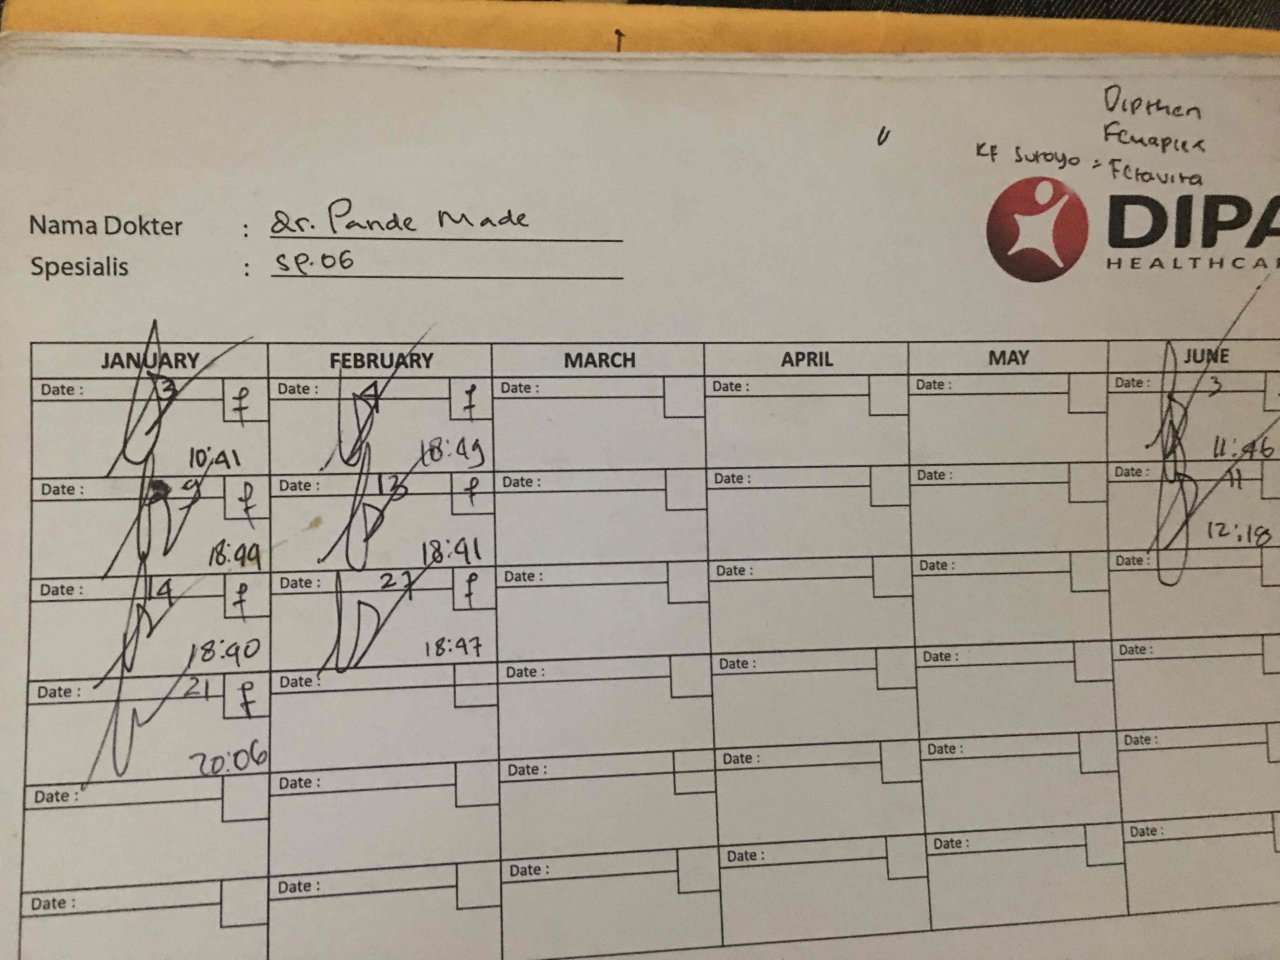 Dipthen
Fenaplex
KF Suroyo = Fetavita
DIPA
HEALTHCAR
Nama Dokter : dr. Pande Made
Spesialis : SP.OG
JANUARY FEBRUARY MARCH APRIL MAY JUNE
Date : 3 f Date : 4 f Date : Date : Date : Date : 3
10:41 18:49 11:46
Date : 9 f Date : 13 f Date : Date : Date : Date : 11
18:44 18:41 12:18
Date : 14 f Date : 27 f Date : Date : Date : Date :
18:40 18:47
Date : 21 f Date : Date : Date : Date : Date :
20:06
Date : Date : Date : Date : Date : Date :
Date : Date : Date : Date : Date : Date :